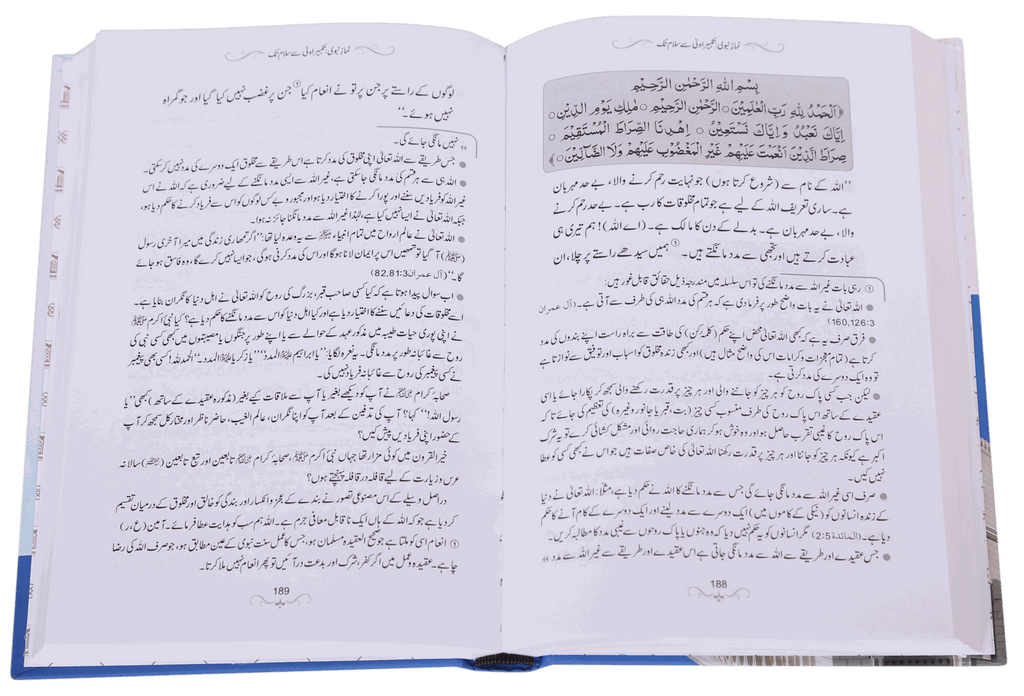 نماز نبوی: تکبیر اولیٰ سے سلام تک
بِسْمِ اللهِ الرَّحْمٰنِ الرَّحِيْمِ
﴿اَلْحَمْدُ لِلّٰهِ رَبِّ الْعٰلَمِيْنَ ○ الرَّحْمٰنِ الرَّحِيْمِ ○ مٰلِكِ يَوْمِ الدِّيْنِ ○
اِيَّاكَ نَعْبُدُ وَاِيَّاكَ نَسْتَعِيْنُ ○ اِهْدِنَا الصِّرَاطَ الْمُسْتَقِيْمَ ○
صِرَاطَ الَّذِيْنَ اَنْعَمْتَ عَلَيْهِمْ غَيْرِ الْمَغْضُوْبِ عَلَيْهِمْ وَلَا الضَّآلِّيْنَ ○﴾
”اللہ کے نام سے (شروع کرتا ہوں) جو نہایت رحم کرنے والا، بے حد مہربان
ہے۔ ساری تعریف اللہ کے لیے ہے جو تمام مخلوقات کا رب ہے۔ بے حد رحم کرنے
والا، بے حد مہربان ہے۔ بدلے کے دن کا مالک ہے۔ (اے اللہ) ! ہم تیری ہی
عبادت کرتے ہیں اور تجھی سے مدد مانگتے ہیں۔ ① ہمیں سیدھے راستے پر چلا، ان
① رہی بات غیر اللہ سے مدد مانگنے کی تو اس سلسلہ میں مندرجہ ذیل حقائق قابل غور ہیں:
● اللہ تعالیٰ نے یہ بات واضح طور پر فرما دی ہے کہ ہر قسم کی مدد اللہ ہی کی طرف سے آتی ہے۔ (آل عمران
160,126:3)
● فرق صرف یہ ہے کہ کبھی اللہ تعالیٰ محض اپنے حکم (کلمۂ کن) کی طاقت سے براہ راست اپنے بندوں کی مدد
کرتا ہے (تمام معجزات و کرامات اس کی واضح مثال ہیں) اور کبھی زندہ مخلوق کو اسباب اور توفیق سے نوازتا ہے
تو وہ ایک دوسرے کی مدد کرتی ہے۔
● لیکن جب کسی پاک روح کو ہر چیز کو جاننے والی اور ہر چیز پر قدرت رکھنے والی سمجھ کر پکارا جائے یا اسی
عقیدے کے ساتھ اس پاک روح کی طرف منسوب کسی چیز (بت، قبر یا جانور وغیرہ) کی تعظیم کی جائے تاکہ
اس پاک روح کا غیبی تقرب حاصل ہو اور وہ خوش ہو کر ہماری حاجت روائی اور مشکل کشائی کرے تو یہ شرک
اکبر ہے کیونکہ ہر چیز کو جاننا اور ہر چیز پر قدرت رکھنا اللہ تعالیٰ کی خاص صفات ہیں جو اس نے کبھی کسی کو عطا
نہیں کیں۔
● صرف اسی غیر اللہ سے مدد مانگی جائے گی جس سے مدد مانگنے کا اللہ نے حکم دیا ہے، مثلاً: اللہ تعالیٰ نے دنیا
کے زندہ انسانوں کو (نیکی کے کاموں میں) ایک دوسرے سے مدد لینے اور ایک دوسرے کے کام آنے کا حکم
دیا ہے۔ (المائدۃ 2:5) مگر انسانوں کو یہ حکم نہیں دیا کہ وہ جنوں یا پاک روحوں سے غیبی مدد کا مطالبہ کریں۔
● جس عقیدے اور طریقے سے اللہ سے مدد مانگی جاتی ہے اس عقیدے اور طریقے سے غیر اللہ سے مدد »
188
نماز نبوی: تکبیر اولیٰ سے سلام تک
لوگوں کے راستے پر جن پر تو نے انعام کیا ① جن پر غضب نہیں کیا گیا اور جو گمراہ
نہیں ہوئے۔“
» نہیں مانگی جائے گی۔
● جس طریقے سے اللہ تعالیٰ اپنی مخلوق کی مدد کرتا ہے اس طریقے سے مخلوق ایک دوسرے کی مدد نہیں کر سکتی۔
● اللہ ہی سے ہر قسم کی مدد مانگی جا سکتی ہے، غیر اللہ سے ایسی مدد مانگنے کے لیے ضروری ہے کہ اللہ نے اس
غیر اللہ کو فریادیں سننے اور پورا کرنے کا اختیار دیا ہو اور مجبور و بے کس لوگوں کو اس سے فریاد کرنے کا حکم دیا ہو،
جبکہ اللہ تعالیٰ نے ایسا نہیں کیا ہے، لہٰذا غیر اللہ سے مدد مانگنا جائز نہ ہوا۔
● اللہ تعالیٰ نے عالم ارواح میں تمام انبیاء ﷺ سے یہ وعدہ لیا تھا: ”اگر تمہاری زندگی میں میرا آخری رسول
(ﷺ) آ گیا تو تمہیں اس پر ایمان لانا ہوگا اور اس کی مدد کرنی ہوگی، جو ایسا نہیں کرے گا، وہ فاسق ہو جائے
گا۔“ (آل عمران 82,81:3)
● اب سوال پیدا ہوتا ہے کہ کیا کسی صاحب قبر، بزرگ کی روح کو اللہ تعالیٰ نے اہل دنیا کا نگران بنایا ہے۔
اسے مخلوقات کی دعائیں سننے کا اختیار دیا ہے اور کیا اہل دنیا کو اس سے مدد مانگنے کا حکم دیا ہے؟ کیا نبی اکرم ﷺ
نے اپنی پوری حیات طیبہ میں مذکور عہد کے حوالے سے یا اپنے طور پر جنگوں یا مصیبتوں میں کبھی کسی نبی کی
روح سے غائبانہ طور پر مدد مانگی۔ یہ نعرہ لگایا: ”یا ابراہیم المدد“ ”یا زکریا المدد“۔ الحمد للہ! کسی بھی پیغمبر
نے کسی پیغمبر کی روح سے غائبانہ فریاد نہیں کی۔
صحابہ کرام نے آپ کو دیکھے بغیر یا آپ سے ملاقات کیے بغیر (مذکورہ عقیدے کے ساتھ) کبھی ”یا
رسول اللہ!“ کہا؟ آپ کی تدفین کے بعد آپ کو اپنا نگران، عالم الغیب، حاضر ناظر اور مختار کل سمجھ کر آپ
کے حضور اپنی فریادیں پیش کیں؟
خیر القرون میں کوئی مزار تھا جہاں نبی اکرم ﷺ، صحابہ کرام تابعین اور تبع تابعین سالانہ
عرس و زیارت کے لیے قافلہ در قافلہ پہنچتے ہوں؟
دراصل وسیلے کے اس مصنوعی تصور نے بندے کے عجز و انکسار اور بندگی کو خالق اور مخلوق کے درمیان تقسیم
کر دیا ہے جو کہ اللہ کے ہاں ایک نا قابل معافی جرم ہے۔ اللہ ہم سب کو ہدایت عطا فرمائے۔ آمین (ع،ر)
① انعام اسی کو ملتا ہے جو صحیح العقیدہ مسلمان ہو، جس کا عمل سنت نبوی کے عین مطابق ہو، جو صرف اللہ کی رضا
چاہے۔ عقیدہ و عمل میں اگر کفر، شرک اور بدعت در آئیں تو پھر انعام نہیں ملا کرتا۔
189